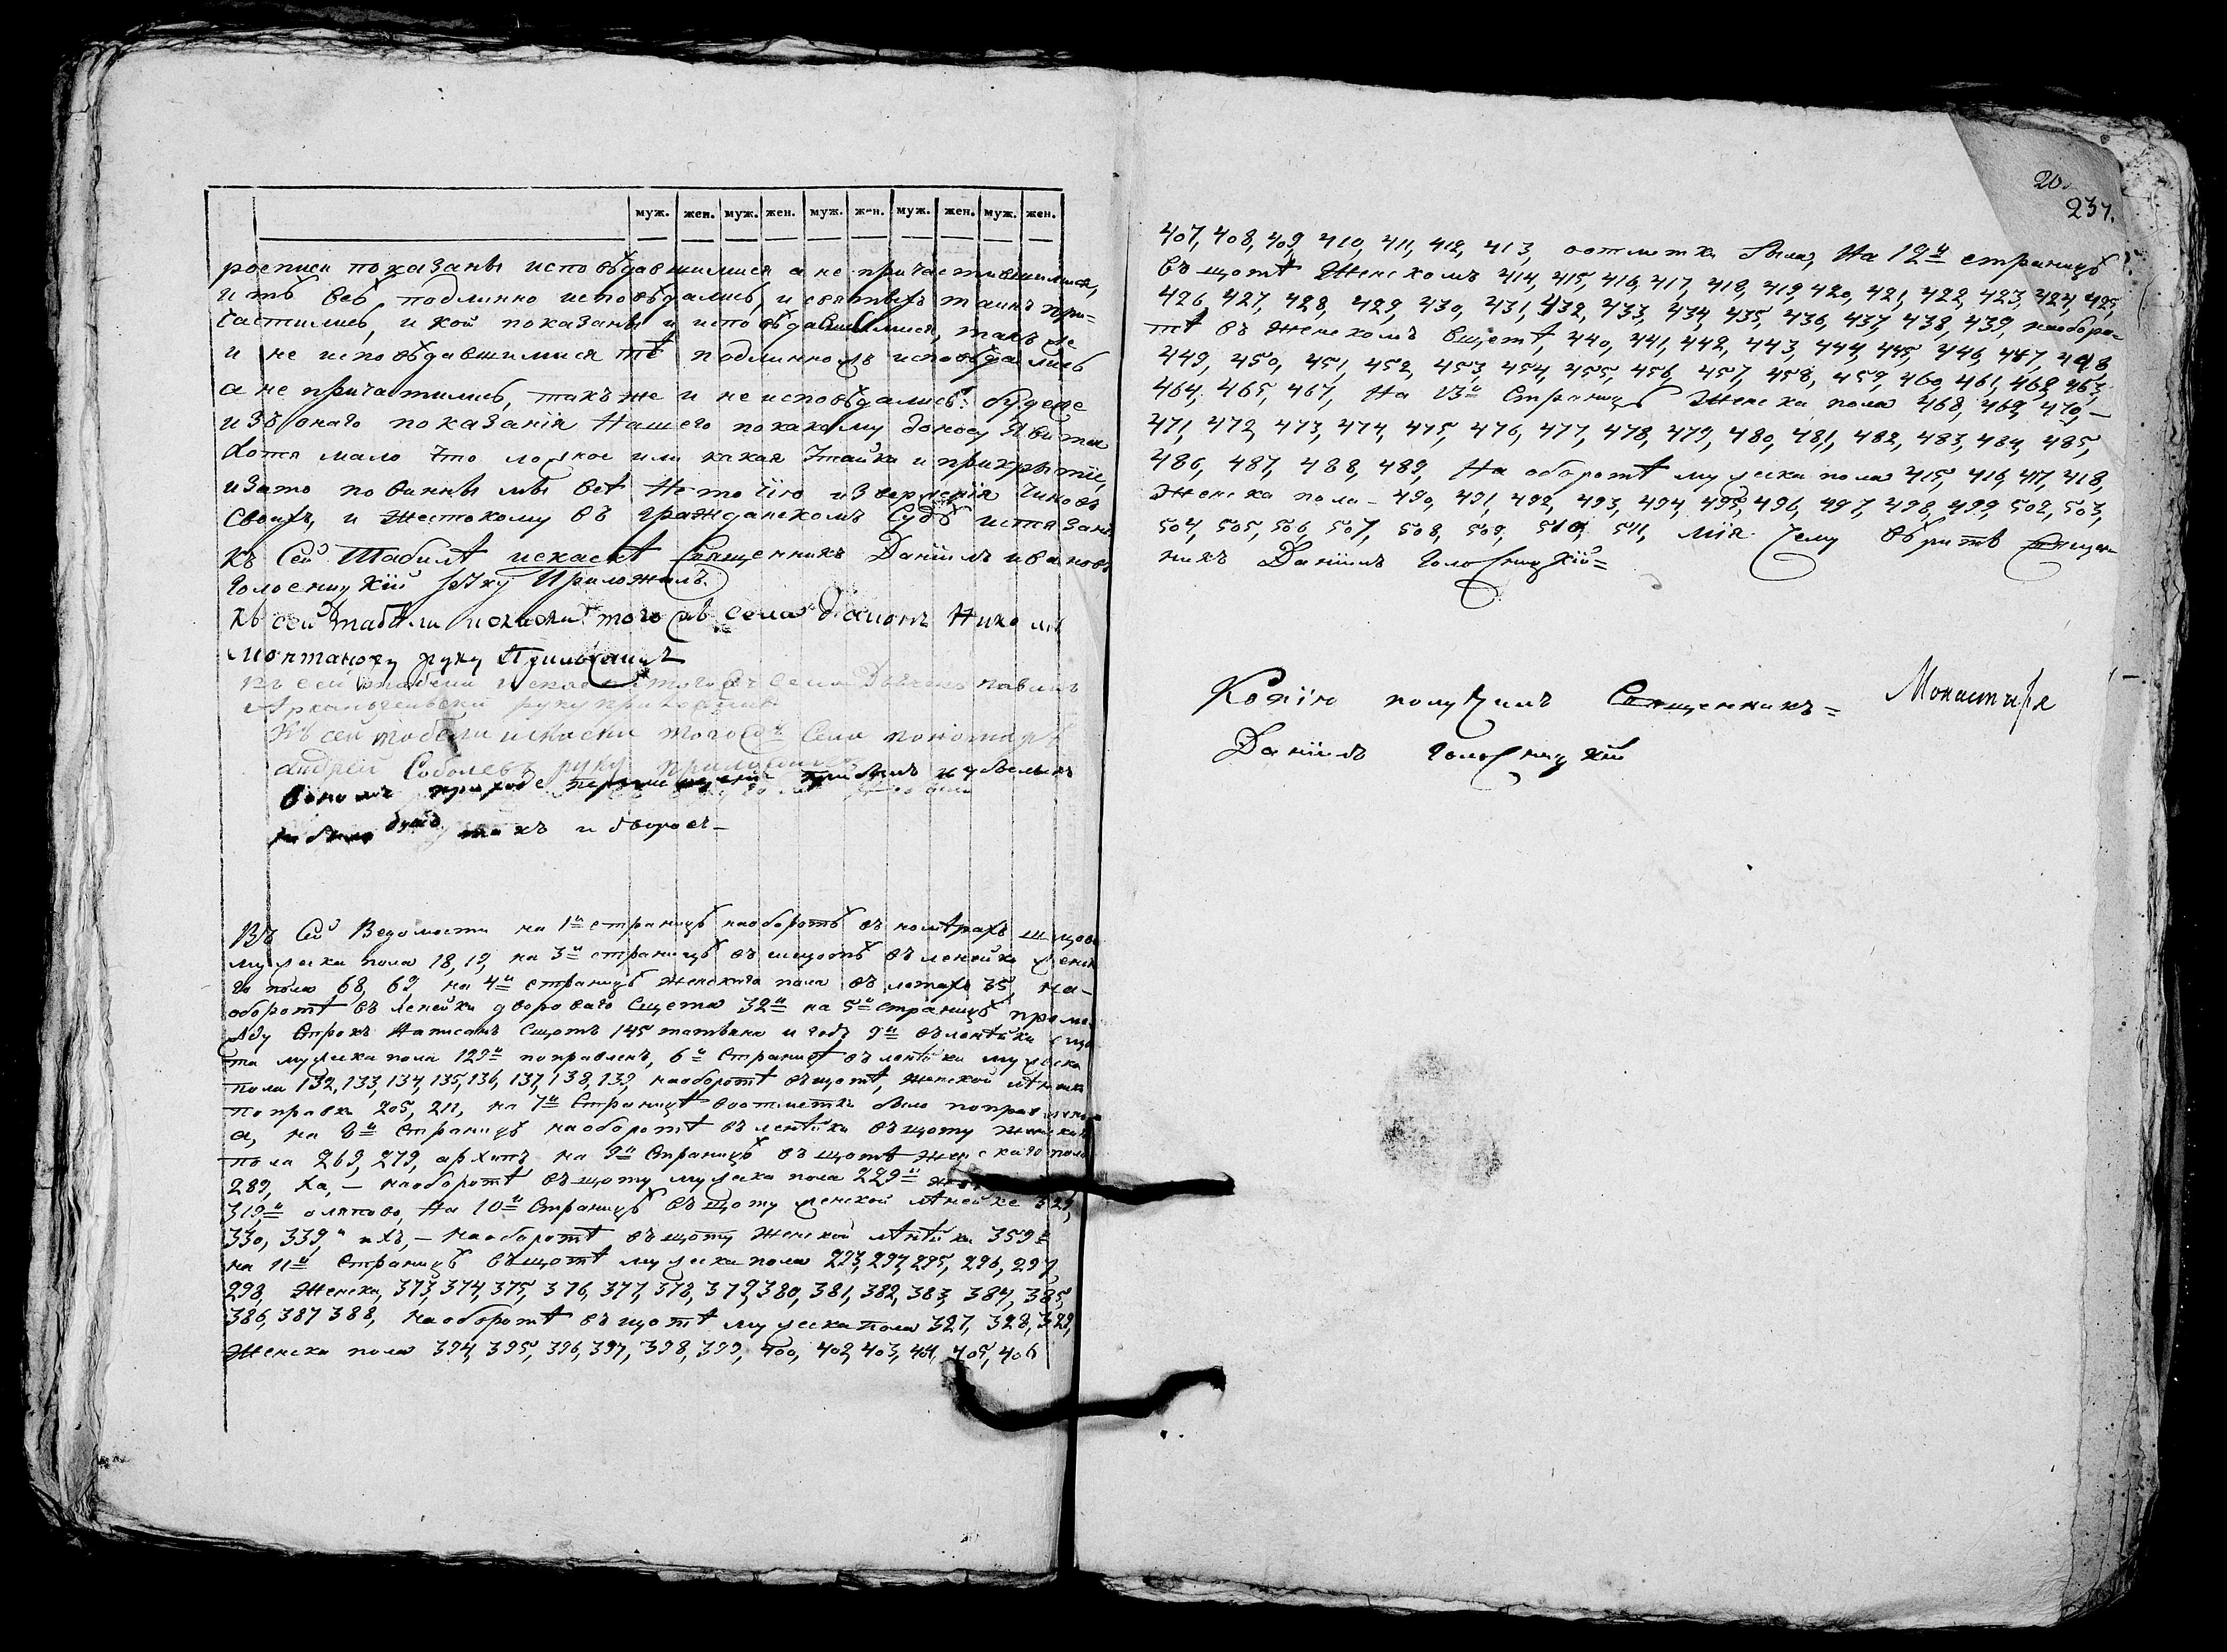 муж. жен. муж. жен. муж. жен. муж. жен. муж. жен.
росписи показаны исповѣдавшимися а не причастившимися,
и тѣ всѣ подлинно исповѣдались, и святыхъ таинъ при=
частились, и кои показаны и исповѣдавшимися, такъ же
и не исповѣдавшимися тѣ подлинно исповѣдались
а не причастились, такъ же и не исповѣдались: буде же
изъ онаго показанія нашего по какому доносу явится
хотя мало что ложное или какая утайка и прикрытіе,
и за то повинны мы всѣ не точію изверженія чиновъ
своихъ, и жестокому въ гражданскомъ судѣ истязанію
къ сей табилѣ Священникъ Даніилъ Ивановъ
руку приложилъ
къ сей табѣли того св села діаконъ
руку приложилъ
къ сей табели того села Павелъ
Архангельски руку приложилъ
къ сей табели того села пономарь
Андрей Соболевъ руку приложилъ
приходе прибыли
такъ и дворовъ
Въ сей Ведомости на 1й страницѣ на оборотѣ въ
мужеска пола 18, 19, на 3й страницѣ въ щотѣ въ женска
го пола 68, 69 на 4й страницѣ женскаго пола въ 35, на=
оборотѣ въ двороваго счета 32й на 5й страницѣ проме
жду строкъ написанъ счотъ 145 татьяна и годъ 9й въ
та мужеска пола 129й поправленъ, 6й страницѣ въ мужеска
пола 132, 133, 134, 135, 136, 137, 138, 139, на оборотѣ въ щотѣ, женской
поправка 205, 211, на 7й страницѣ в отметки было
а, на 8й страницѣ на оборотѣ въ въ щоту женска
пола 269, 279, архипъ на 9й страницѣ въ щотѣ женскаго пола
289, ха, — на оборотѣ въ щоту мужеска пола 229й
319й на 10й страницѣ въ щоту женской 329,
330, 339, — на оборотѣ въ щоту женской 359й
на 11й страницѣ въ щотѣ мужеска пола 295, 296, 297,
298, женска, 373, 374, 375, 376, 377, 378, 379, 380, 381, 382, 383, 384, 385,
386, 387 388, на оборотѣ въ щотѣ мужеска пола 327, 328, 329,
женска пола 394, 395, 396, 397, 398, 399, 400, 402, 403, 404, 405, 406
20
237.
407, 408, 409, 410, 411, 412, 413, в отметки была, на 12й страницѣ
въ щотѣ женскомъ 414, 415, 416, 417, 418, 419, 420, 421, 422, 423, 424, 425,
426, 427, 428, 429, 430, 431, 432, 433, 434, 435, 436, 437, 438, 439, на оборо=
тѣ въ женскомъ вщетѣ, 440, 441, 442, 443, 444, 445, 446, 447, 448,
449, 450, 451, 452, 453, 454, 455, 456, 457, 458, 459, 460, 461, 462, 463,
464, 465, 467, на 13й страницѣ женска пола 468, 469, 470, —
471, 472, 473, 474, 475, 476, 477, 478, 479, 480, 481, 482, 483, 484, 485,
486, 487, 488, 489, на оборотѣ мужеска пола 415, 416, 417, 418,
женска пола — 490, 491, 492, 493, 494, 495, 496, 497, 498, 499, 502, 503,
504, 505, 506, 507, 508, 509, 510, 511, чему вѣрить Священ
никъ Даніилъ
Копію получилъ Священникъ = Монастыря
Даніилъ